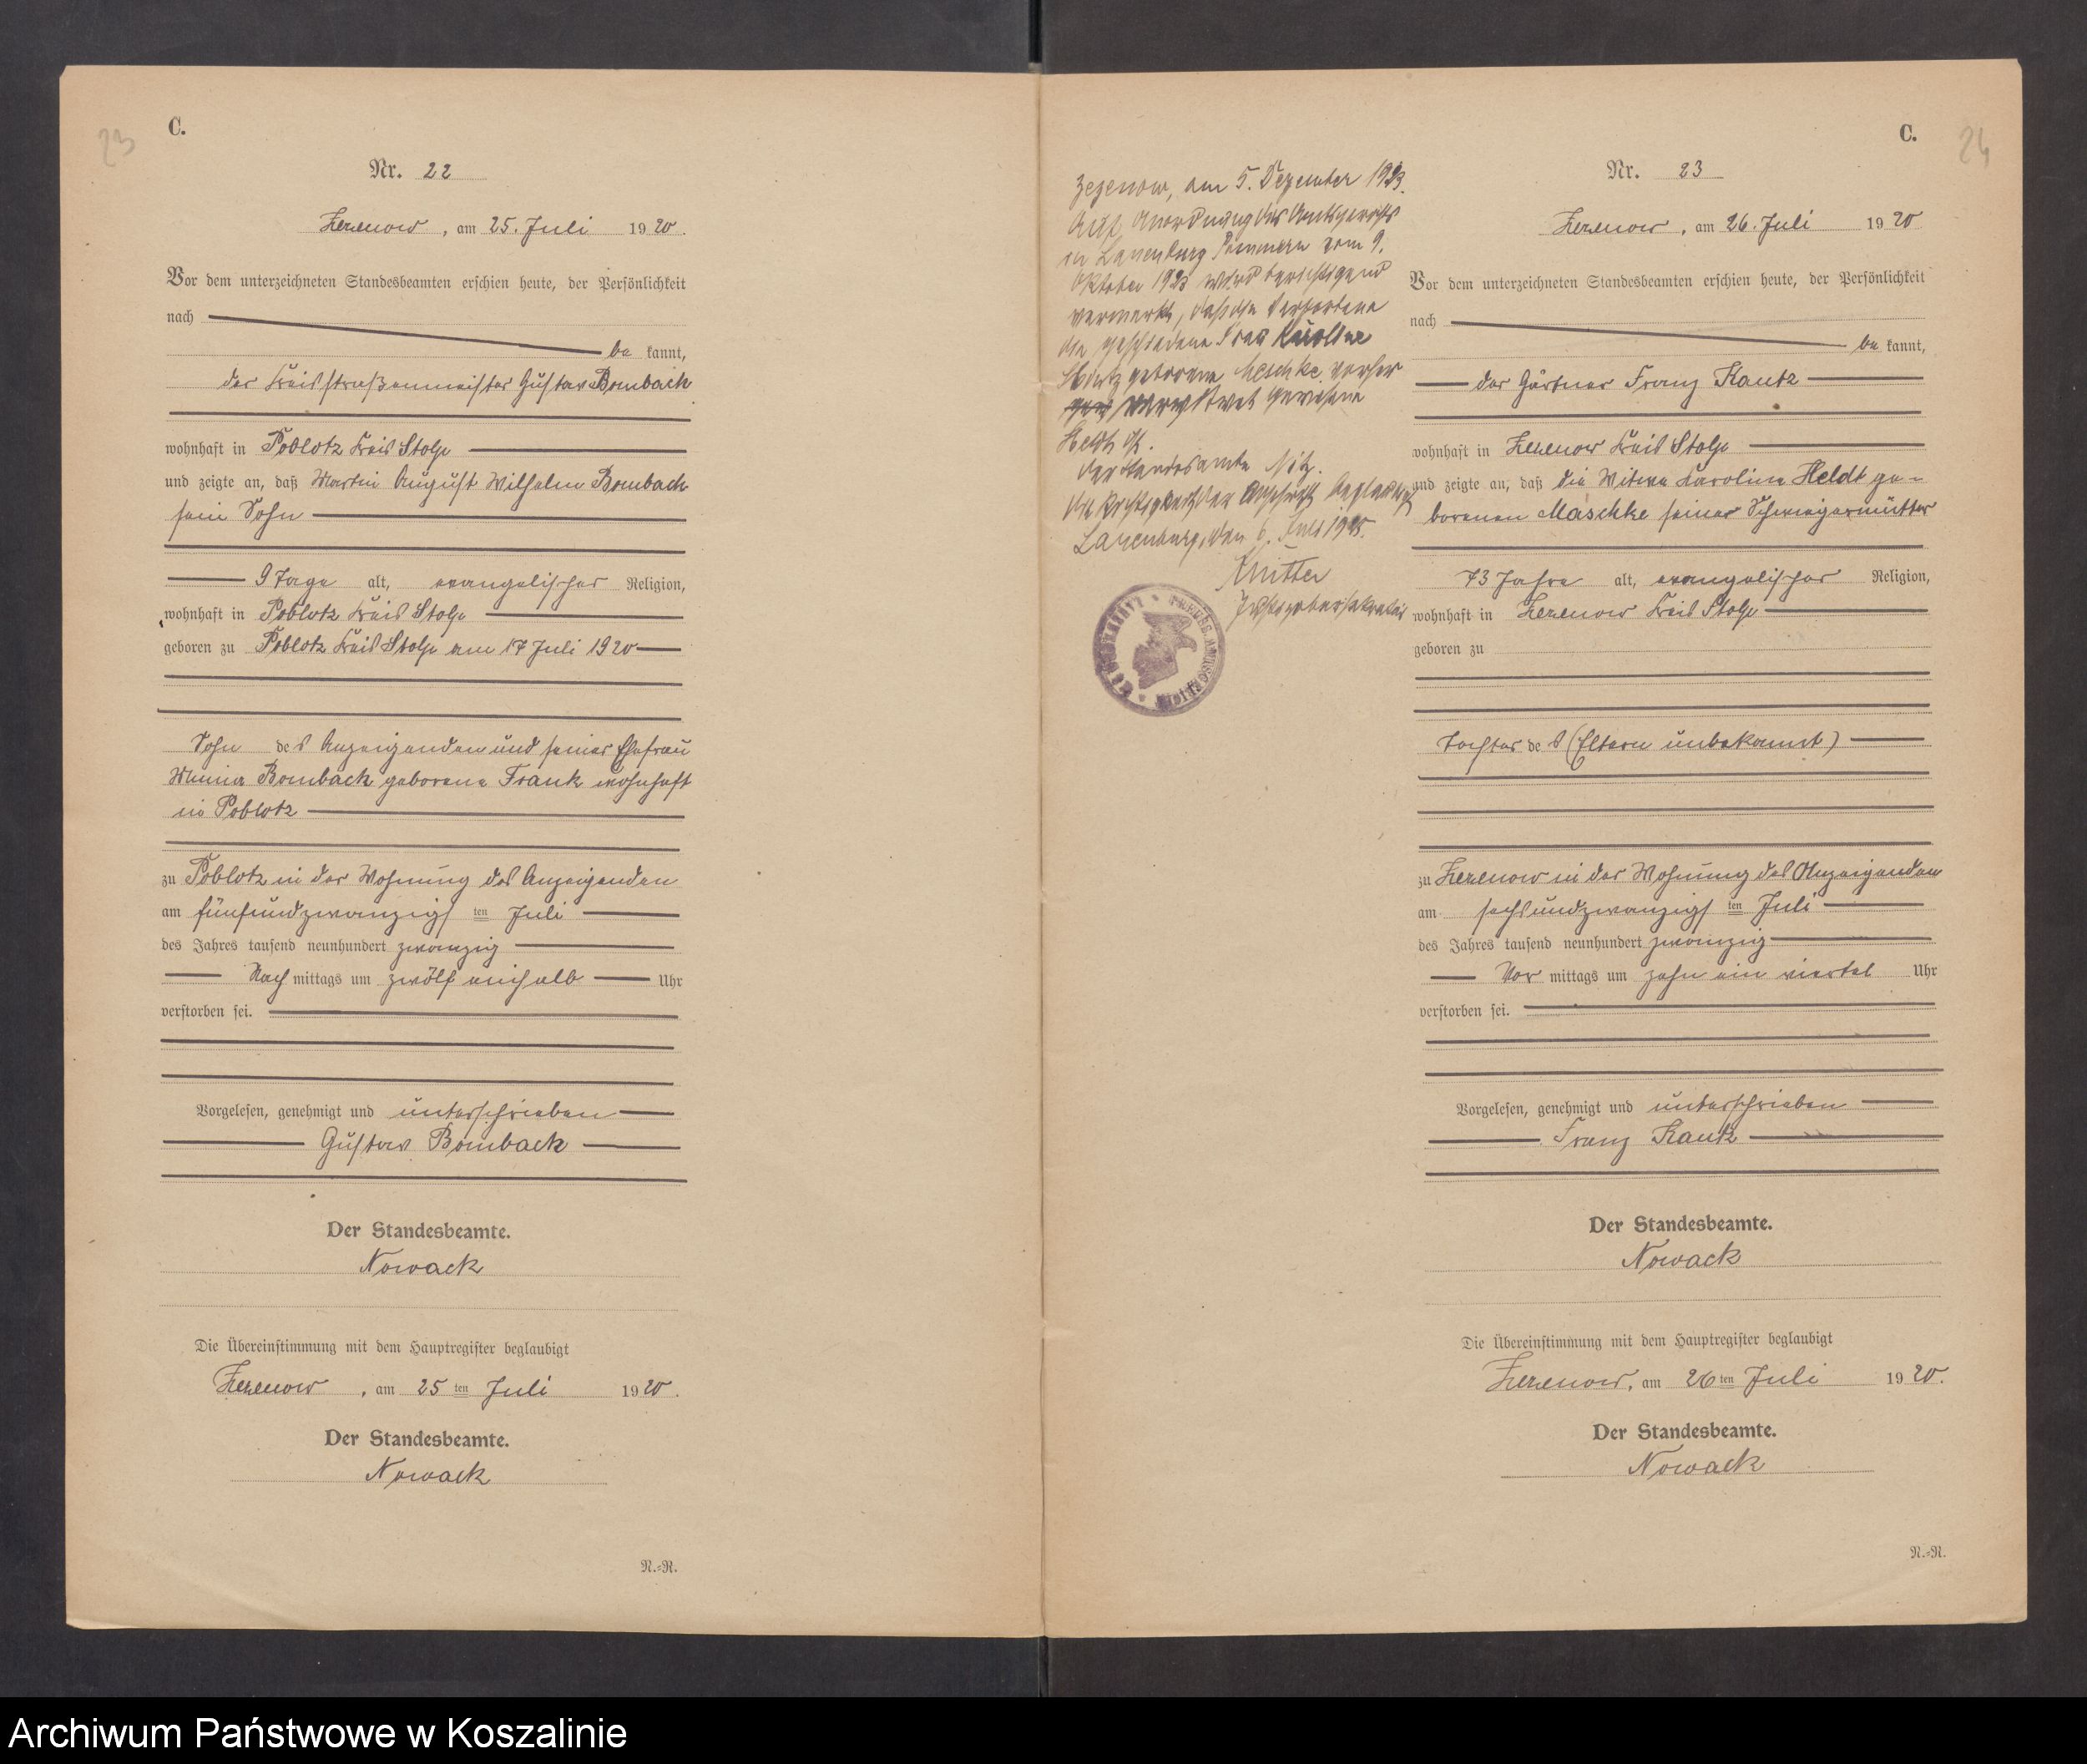 23
C.
Nr. 22
Zezenow, am 25. Juli 1920.
Vor dem unterzeichneten Standesbeamten erschien heute, der Persönlichkeit
nach
be kannt,
der Kreisstraßenmeister Gustav Bomback
wohnhaft in Poblotz Kreis Stolp
und zeigte an, daß Martin August Wilhelm Bomback
sein Sohn
9 Tage alt, evangelischer Religion,
wohnhaft in Poblotz Kreis Stolp
geboren zu Poblotz Kreis Stolp am 17 Juli 1920
Sohn des Anzeigenden und seiner Ehefrau
Minna Bomback geborene Frank wohnhaft
in Poblotz
zu Poblotz in der Wohnung des Anzeigenden
am fünfundzwanzigsten Juli
des Jahres tausend neunhundert zwanzig
Nach mittags um zwölf einhalb Uhr
verstorben sei.
Vorgelesen, genehmigt und unterschrieben
Gustav Bomback
Der Standesbeamte.
Nowack
Die Übereinstimmung mit dem Hauptregister beglaubigt
Zezenow, am 25ten Juli 1920.
Der Standesbeamte.
Nowack
N.=N.
Zezenow, am 5. Dezember 1923.
Auf Anordnung des Amtsgerichts
in Lauenburg Pommern vom 9.
Oktober 1923 wird berichtigend
vermerkt, daß die Verstorbene
die geschiedene Frau Karoline
geborene Meschke vorher
verwitwet gewesene
Heldt ist.
Der Standesbeamte Nitz.
Die Richtigkeit der Abschrift beglaubigt
Lauenburg, den 6. Juli 1925.
Knitter
Justizobersekretär
24
C.
Nr. 23
Zezenow, am 26. Juli 1920
Vor dem unterzeichneten Standesbeamten erschien heute, der Persönlichkeit
nach
be kannt,
der Gärtner Franz Kautz
wohnhaft in Zezenow Kreis Stolp
und zeigte an, daß die Witwe Karoline Heldt ge-
borenen Maschke seiner Schwiegermutter
73 Jahre alt, evangelischer Religion,
wohnhaft in Zezenow Kreis Stolp
geboren zu
Tochter des (Eltern unbekannt)
zu Zezenow in der Wohnung des Anzeigenden
am sechsundzwanzigsten Juli
des Jahres tausend neunhundert zwanzig
Vor mittags um zehn ein viertel Uhr
verstorben sei.
Vorgelesen, genehmigt und unterschrieben
Franz Kautz
Der Standesbeamte.
Nowack
Die Übereinstimmung mit dem Hauptregister beglaubigt
Zezenow, am 26ten Juli 1920.
Der Standesbeamte.
Nowack
N.=N.
Archiwum Państwowe w Koszalinie